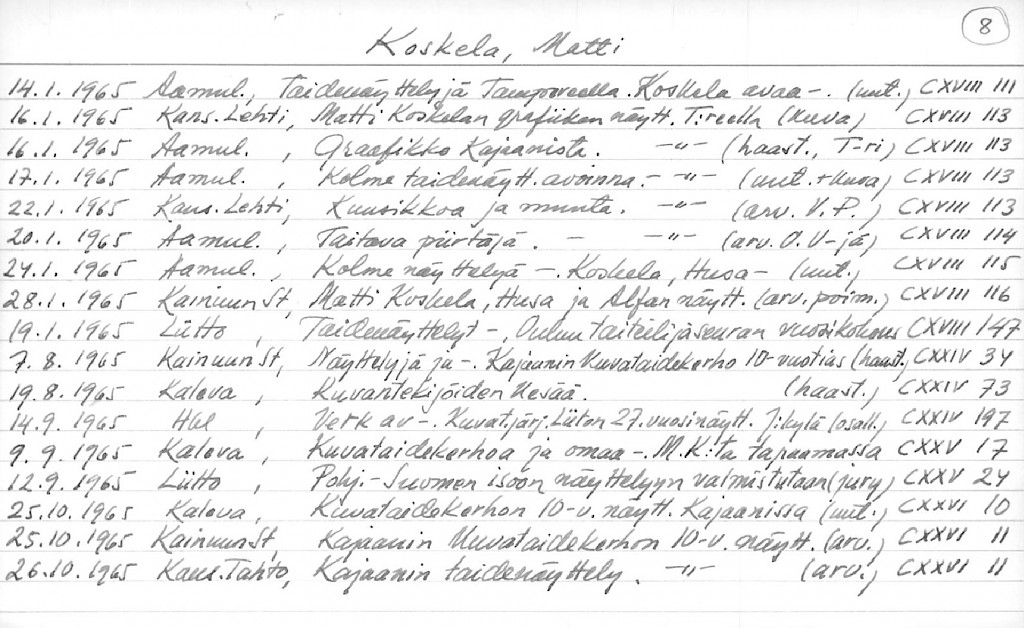 8
Koskela, Matti
14.1.1965 Aamul., Taidenäyttelyjä Tampereella. Koskela avaa -. (uut.) CXVIII 111
16.1.1965 Kans.Lehti, Matti Koskelan grafiikan näytt. T:reella (kuva) CXVIII 113
16.1.1965 Aamul. , Graafikko Kajaanista. -"- (haast., T-ri) CXVIII 113
17.1.1965 Aamul. , Kolme taidenäytt. avoinna.- -"- (uut.+kuva) CXVIII 113
22.1.1965 Kans.Lehti, Kuusikkoa ja muuta. -"- (arv. V.P.) CXVIII 113
20.1.1965 Aamul. , Taitava piirtäjä. - -"- (arv. O.V-jä) CXVIII 114
24.1.1965 Aamul. , Kolme näyttelyä -. Koskela, Husa - (uut.) CXVIII 115
28.1.1965 KainuunSt, Matti Koskela, Husa ja Alfan näytt. (arv. poim.) CXVIII 116
19.1.1965 Liitto , Taidenäyttelyt -, Oulun taiteilijaseuran vuosikokous CXVIII 147
7.8.1965 KainuunSt, Näyttelyjä ja -. Kajaanin Kuvataidekerho 10-vuotias (haast.) CXXIV 34
19.8.1965 Kaleva , Kuvantekijöiden kesää. (haast.) CXXIV 73
14.9.1965 Hbl , Verk av -. Kuvat.järj.Liiton 27. vuosinäytt. J:kylä (osall.) CXXIV 197
9.9.1965 Kaleva , Kuvataidekerhoa ja omaa -. M.K:ta tapaamassa CXXV 17
12.9.1965 Liitto , Pohj.-Suomen isoon näyttelyyn valmistutaan (jury) CXXV 24
25.10.1965 Kaleva, Kuvataidekerhon 10-v. näytt. Kajaanissa (uut.) CXXVI 10
25.10.1965 KainuunSt, Kajaanin Kuvataidekerhon 10-v. näytt. (arv.) CXXVI 11
26.10.1965 Kans.Tahto, Kajaanin taidenäyttely. -"- (arv.) CXXVI 11